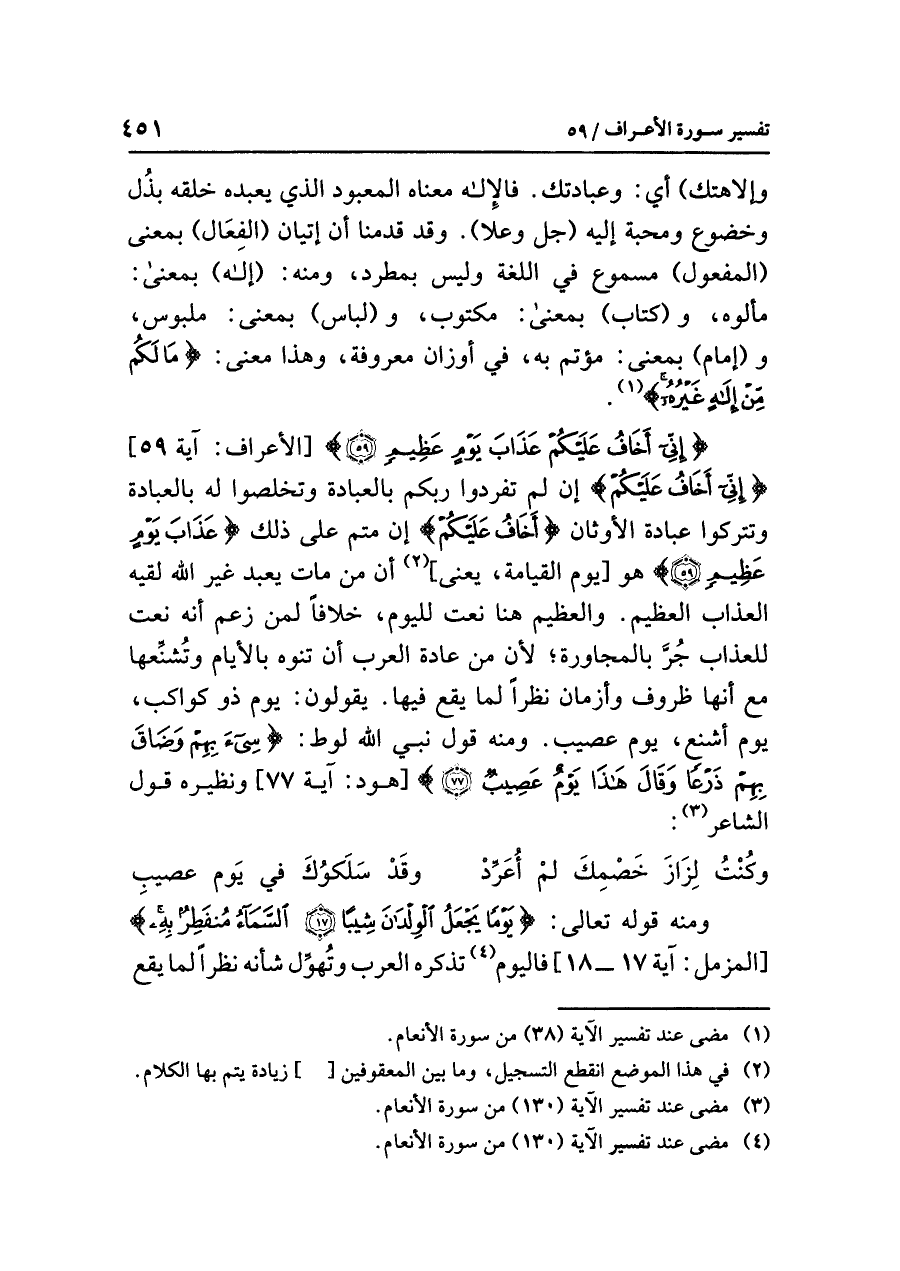 تفسير سورة الأعراف / ٥٩
٤٥١
وإلاهتك) أي: وعبادتك. فالإِلـٰه معناه المعبود الذي يعبده خلقه بذُل
وخضوع ومحبة إليه (جل وعلا). وقد قدمنا أن إتيان (الفِعَال) بمعنى
(المفعول) مسموع في اللغة وليس بمطرد، ومنه: (إلـٰه) بمعنىٰ:
مألوه، و (كتاب) بمعنىٰ: مكتوب، و (لباس) بمعنى: ملبوس،
و (إمام) بمعنى: مؤتم به، في أوزان معروفة، وهذا معنى: ﴿ مَا لَكُم
مِّنْ إِلَـٰهٍ غَيْرُهُۥٓ ﴾(١).
﴿ إِنِّيٓ أَخَافُ عَلَيْكُمْ عَذَابَ يَوْمٍ عَظِيمٍ ٥٩ ﴾ [الأعراف: آية ٥٩]
﴿ إِنِّيٓ أَخَافُ عَلَيْكُمْ ﴾ إن لم تفردوا ربكم بالعبادة وتخلصوا له بالعبادة
وتتركوا عبادة الأوثان ﴿ أَخَافُ عَلَيْكُمْ ﴾ إن متم على ذلك ﴿ عَذَابَ يَوْمٍ
عَظِيمٍ ٥٩ ﴾ هو [يوم القيامة، يعنى](٢) أن من مات يعبد غير الله لقيه
العذاب العظيم. والعظيم هنا نعت لليوم، خلافاً لمن زعم أنه نعت
للعذاب جُرَّ بالمجاورة؛ لأن من عادة العرب أن تنوه بالأيام وتُشنِّعها
مع أنها ظروف وأزمان نظراً لما يقع فيها. يقولون: يوم ذو كواكب،
يوم أشنع، يوم عصيب. ومنه قول نبـي الله لوط: ﴿ سِيٓءَ بِهِمْ وَضَاقَ
بِهِمْ ذَرْعًا وَقَالَ هَـٰذَا يَوْمٌ عَصِيبٌ ٧٧ ﴾ [هـود: آيـة ٧٧] ونظيره قول
الشاعر(٣):
وكُنْتُ لِزَازَ خَصْمِكَ لمْ أُعَرِّدْ وقَدْ سَلَكوُكَ في يَوم عصيبِ
ومنه قوله تعالى: ﴿ يَوْمًا يَجْعَلُ ٱلْوِلْدَٰنَ شِيبًا ١٧ ٱلسَّمَآءُ مُنفَطِرٌۢ بِهِۦ ﴾
[المزمل: آية ١٧ ــ ١٨] فاليوم(٤) تذكره العرب وتُهوِّل شأنه نظراً لما يقع
(١) مضى عند تفسير الآية (٣٨) من سورة الأنعام.
(٢) في هذا الموضع انقطع التسجيل، وما بين المعقوفين [ ] زيادة يتم بها الكلام.
(٣) مضى عند تفسير الآية (١٣٠) من سورة الأنعام.
(٤) مضى عند تفسير الآية (١٣٠) من سورة الأنعام.